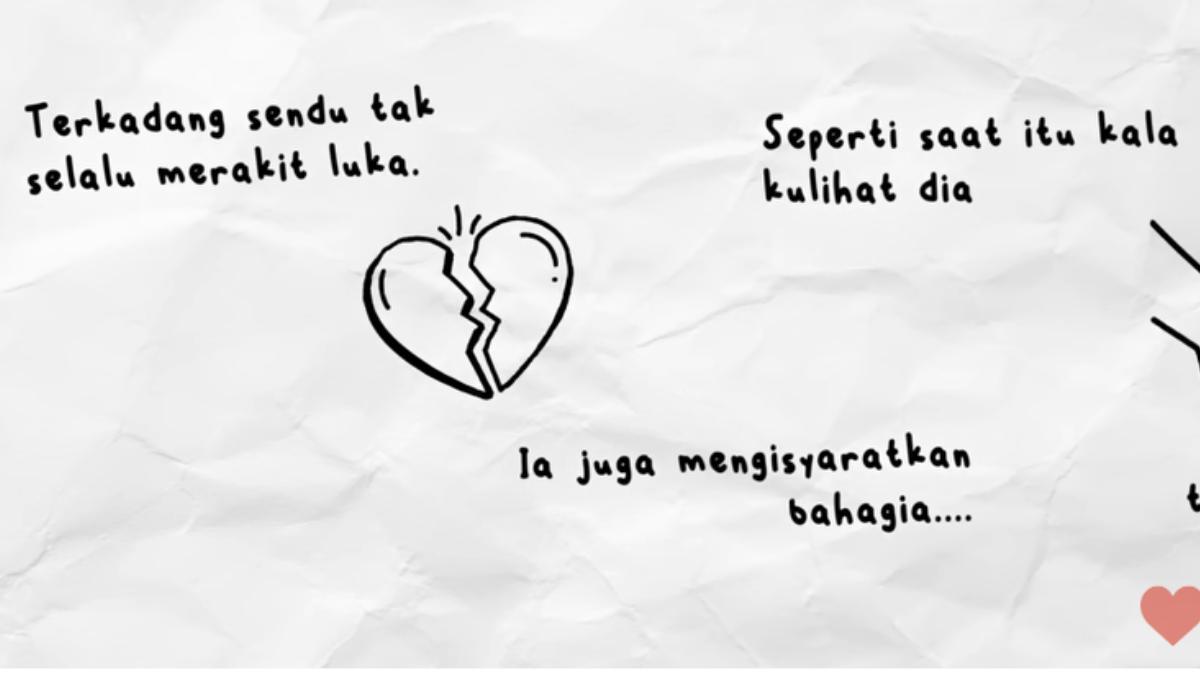 Terkadang sendu tak
selalu merakit luka.
Ia juga mengisyaratkan
bahagia....
Seperti saat itu kala
kulihat dia